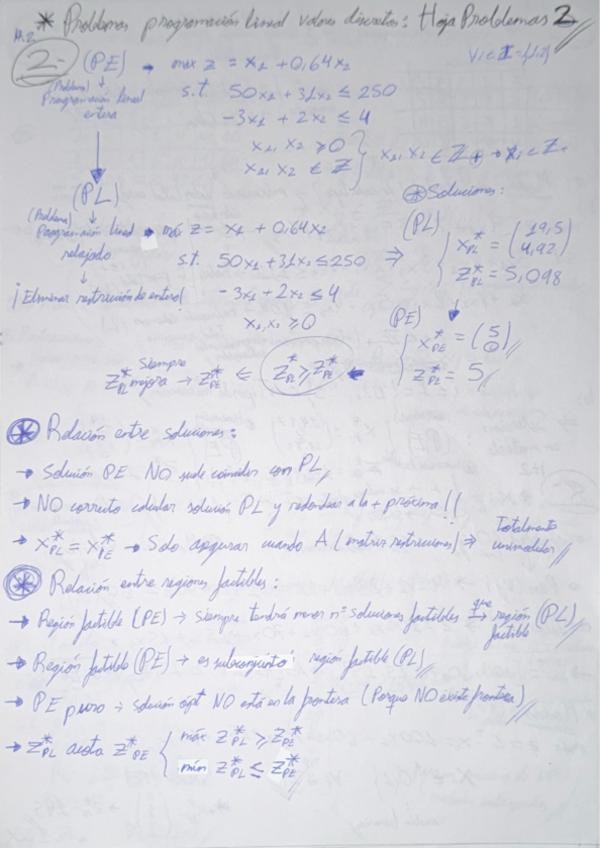 * Problemas programación lineal valores discretos: Hoja Problemas 2
2.- (PE) → max z = x₁ + 0,64x₂ ∀i ∈ I = {1,2}
(Problema) ↓ s.t. 50x₁ + 31x₂ ≤ 250
Programación lineal entera -3x₁ + 2x₂ ≤ 4
x₁, x₂ ≥ 0
x₁, x₂ ∈ Z } x₁, x₂ ∈ Z+ → xi ∈ Z+
(PL) * Soluciones:
(Problema) ↓
Programación lineal relajado → máx z = x₁ + 0,64x₂
s.t. 50x₁ + 31x₂ ≤ 250 ⇒
↓
¡Eliminar restricción de entero! -3x₁ + 2x₂ ≤ 4
x₁, x₂ ≥ 0
(PL) { x*PL = (19,5 4,92)
z*PL = 5,098
↓
(PE) { x*PE = (5 0)
z*PE = 5
z*PL Siempre mejora → z*PE ⇐ z*PL ≥ z*PE ←
* Relación entre soluciones:
→ Solución PE NO suele coincidir con PL
→ NO correcto calcular solución PL y redondear a la + próxima!!
→ x*PL = x*PE → Solo asegurar cuando A (matriz restricciones) ⇒ Totalmente unimodular
* Relación entre regiones factibles:
→ Región factible (PE) → Siempre tendrá menor nº soluciones factibles que → región factible (PL)
→ Región factible (PE) → es subconjunto región factible (PL)
→ PE puro → solución ópt NO está en la frontera (Porque NO existe frontera)
→ z*PL acota z*PE { máx z*PL ≥ z*PE
mín z*PL ≤ z*PE